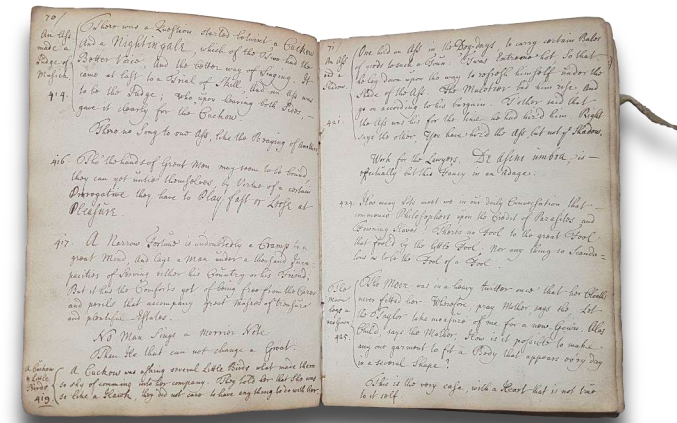 70/
An Ass made a Judge of Musick. 414.
There was a Question started betwixt a Cuckow
and a Nightingale, which of the Two had the
Better Voice, and the better way of Singing. It
came at last to a Trial of Skill, and an Ass was
to be the Judge; Who, upon hearing both Sides,
gave it clearly for the Cuckow
There's no Song to one Ass, like the Braying of Another
416. Tho' the hands of Great Men may seem to be bound
they can yet untie themselves, by Virtue of a certain
Prerogative they have to Play fast or Loose at
Pleasure.
417. A Narrow Fortune is undoubtedly a Cramp to a
great Mind, and lays a Man under a thousand Inca-
pacities of Serving either his Country or his Friend;
But it has the Comforts yet of being free from the Cares
and perils that accompany great Masses of treasure
and plentiful Estates.
No Man Sings a Merrier Note
Than He that can not change a Groat.
A Cuckow & Little Birds 419
A Cuckow was asking several Little Birds what made them
so shy of comming into her company. They told her that She was
so like a Hawk, they did not care to have any thing to do with her.
71
An Ass and a Shadow. 421.
One hired an Ass in the Dog-days, to carry certain Bales
of to such a Town: 'Twas Extreme hot, So that
he lay down upon the way to refresh himself under the
Shade of the Ass. The bad him rise, and
go on according to his bargain. T'other said that
the Ass was his for the time he had hired him. Right
says the other, You have hired the Ass but not ye Shadow.
Work for the Lawyers. De asini umbra, is
effectually but this Fancy in an Adage.
How many Sots meet we in our Daily Conversation that
commence Philosophers upon the Credit of Parasites and
Fawning Slaves. There's no Fool to the Great Fool
that fool'd by the little Fool, Nor any thing so Scanda-
lous as to be the Fool of a Fool.
The Moon begs a new gown. 425.
The Moon was in a heavy twitter once that her Cloaths
never fitted her: Wherefore, pray Mother, says she, Let
the Taylor take measure of me for a new Gown. Alas
Child, says the Mother, How is it possible to make
any one garment to fit a Body that appears every day
in a several Shape?
This is the very case, with a Heart that is not true
to it self